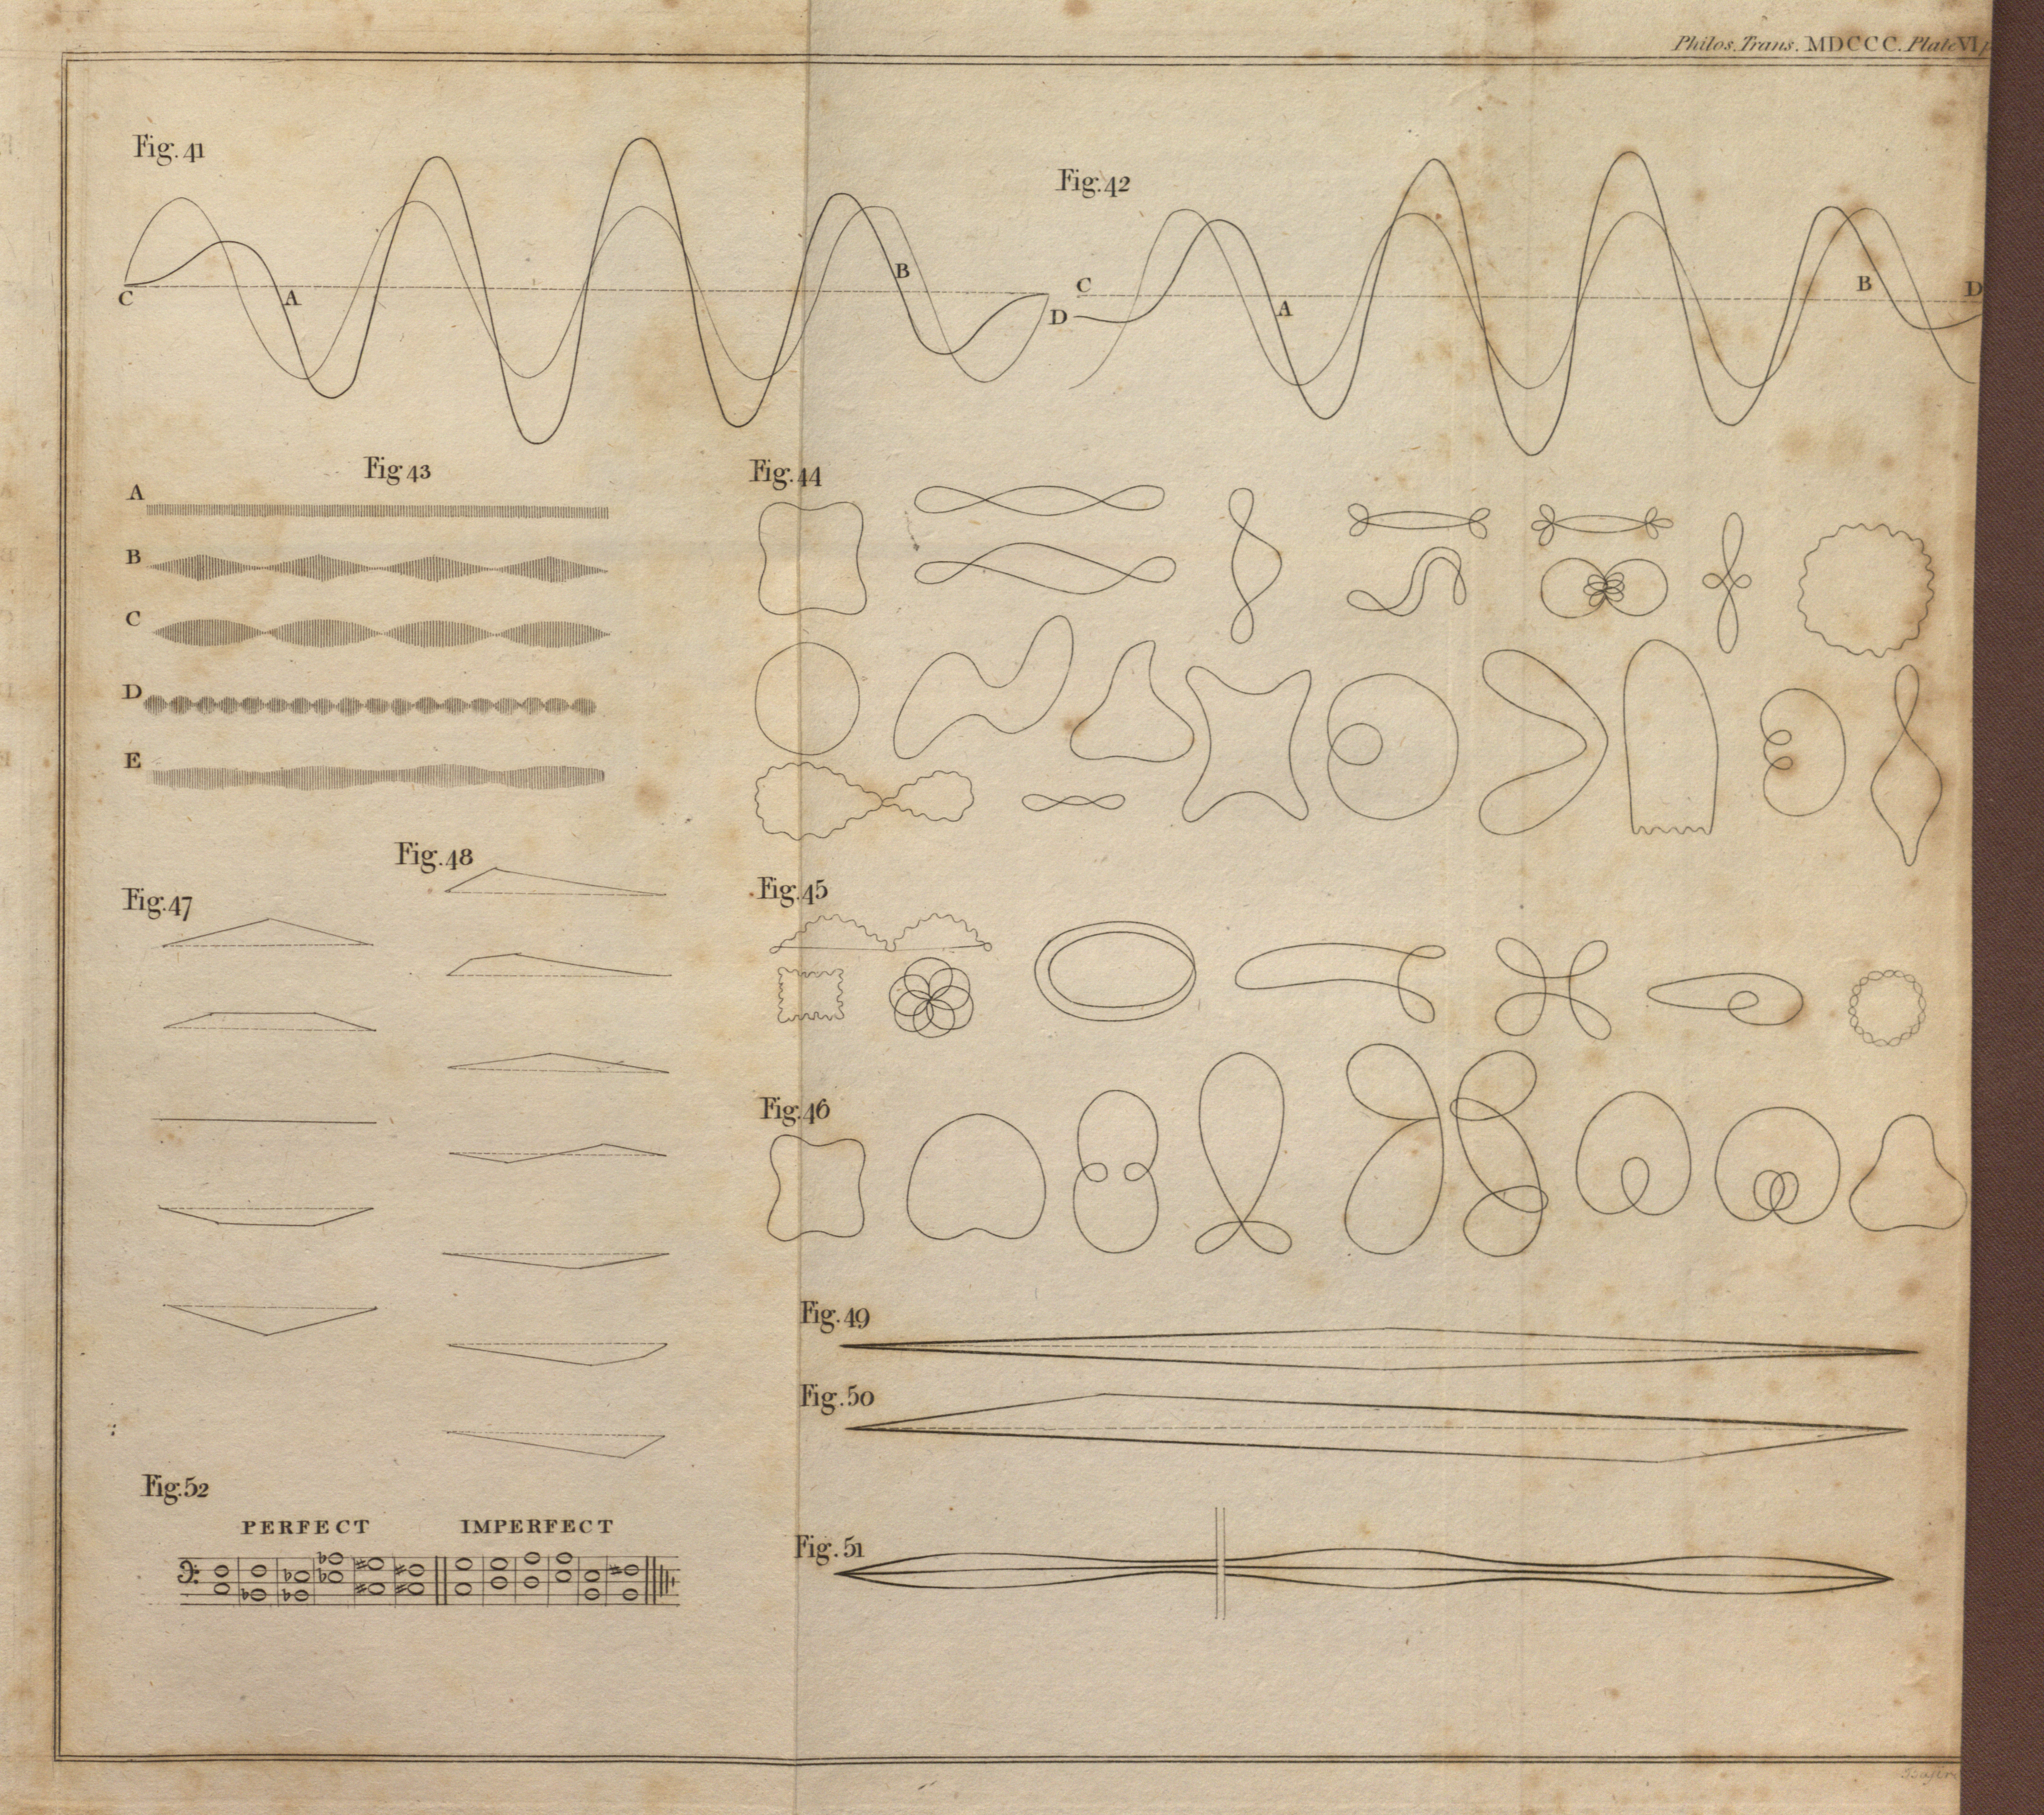 Philos. Trans. MDCCC. Plate VI
Fig. 41
C
A
B
D
Fig. 42
C
A
B
D
Fig 43
A
B
C
D
E
Fig. 44
Fig. 48
Fig. 47
Fig. 45
Fig. 46
Fig. 49
Fig. 50
Fig. 52
PERFECT IMPERFECT
Fig. 51